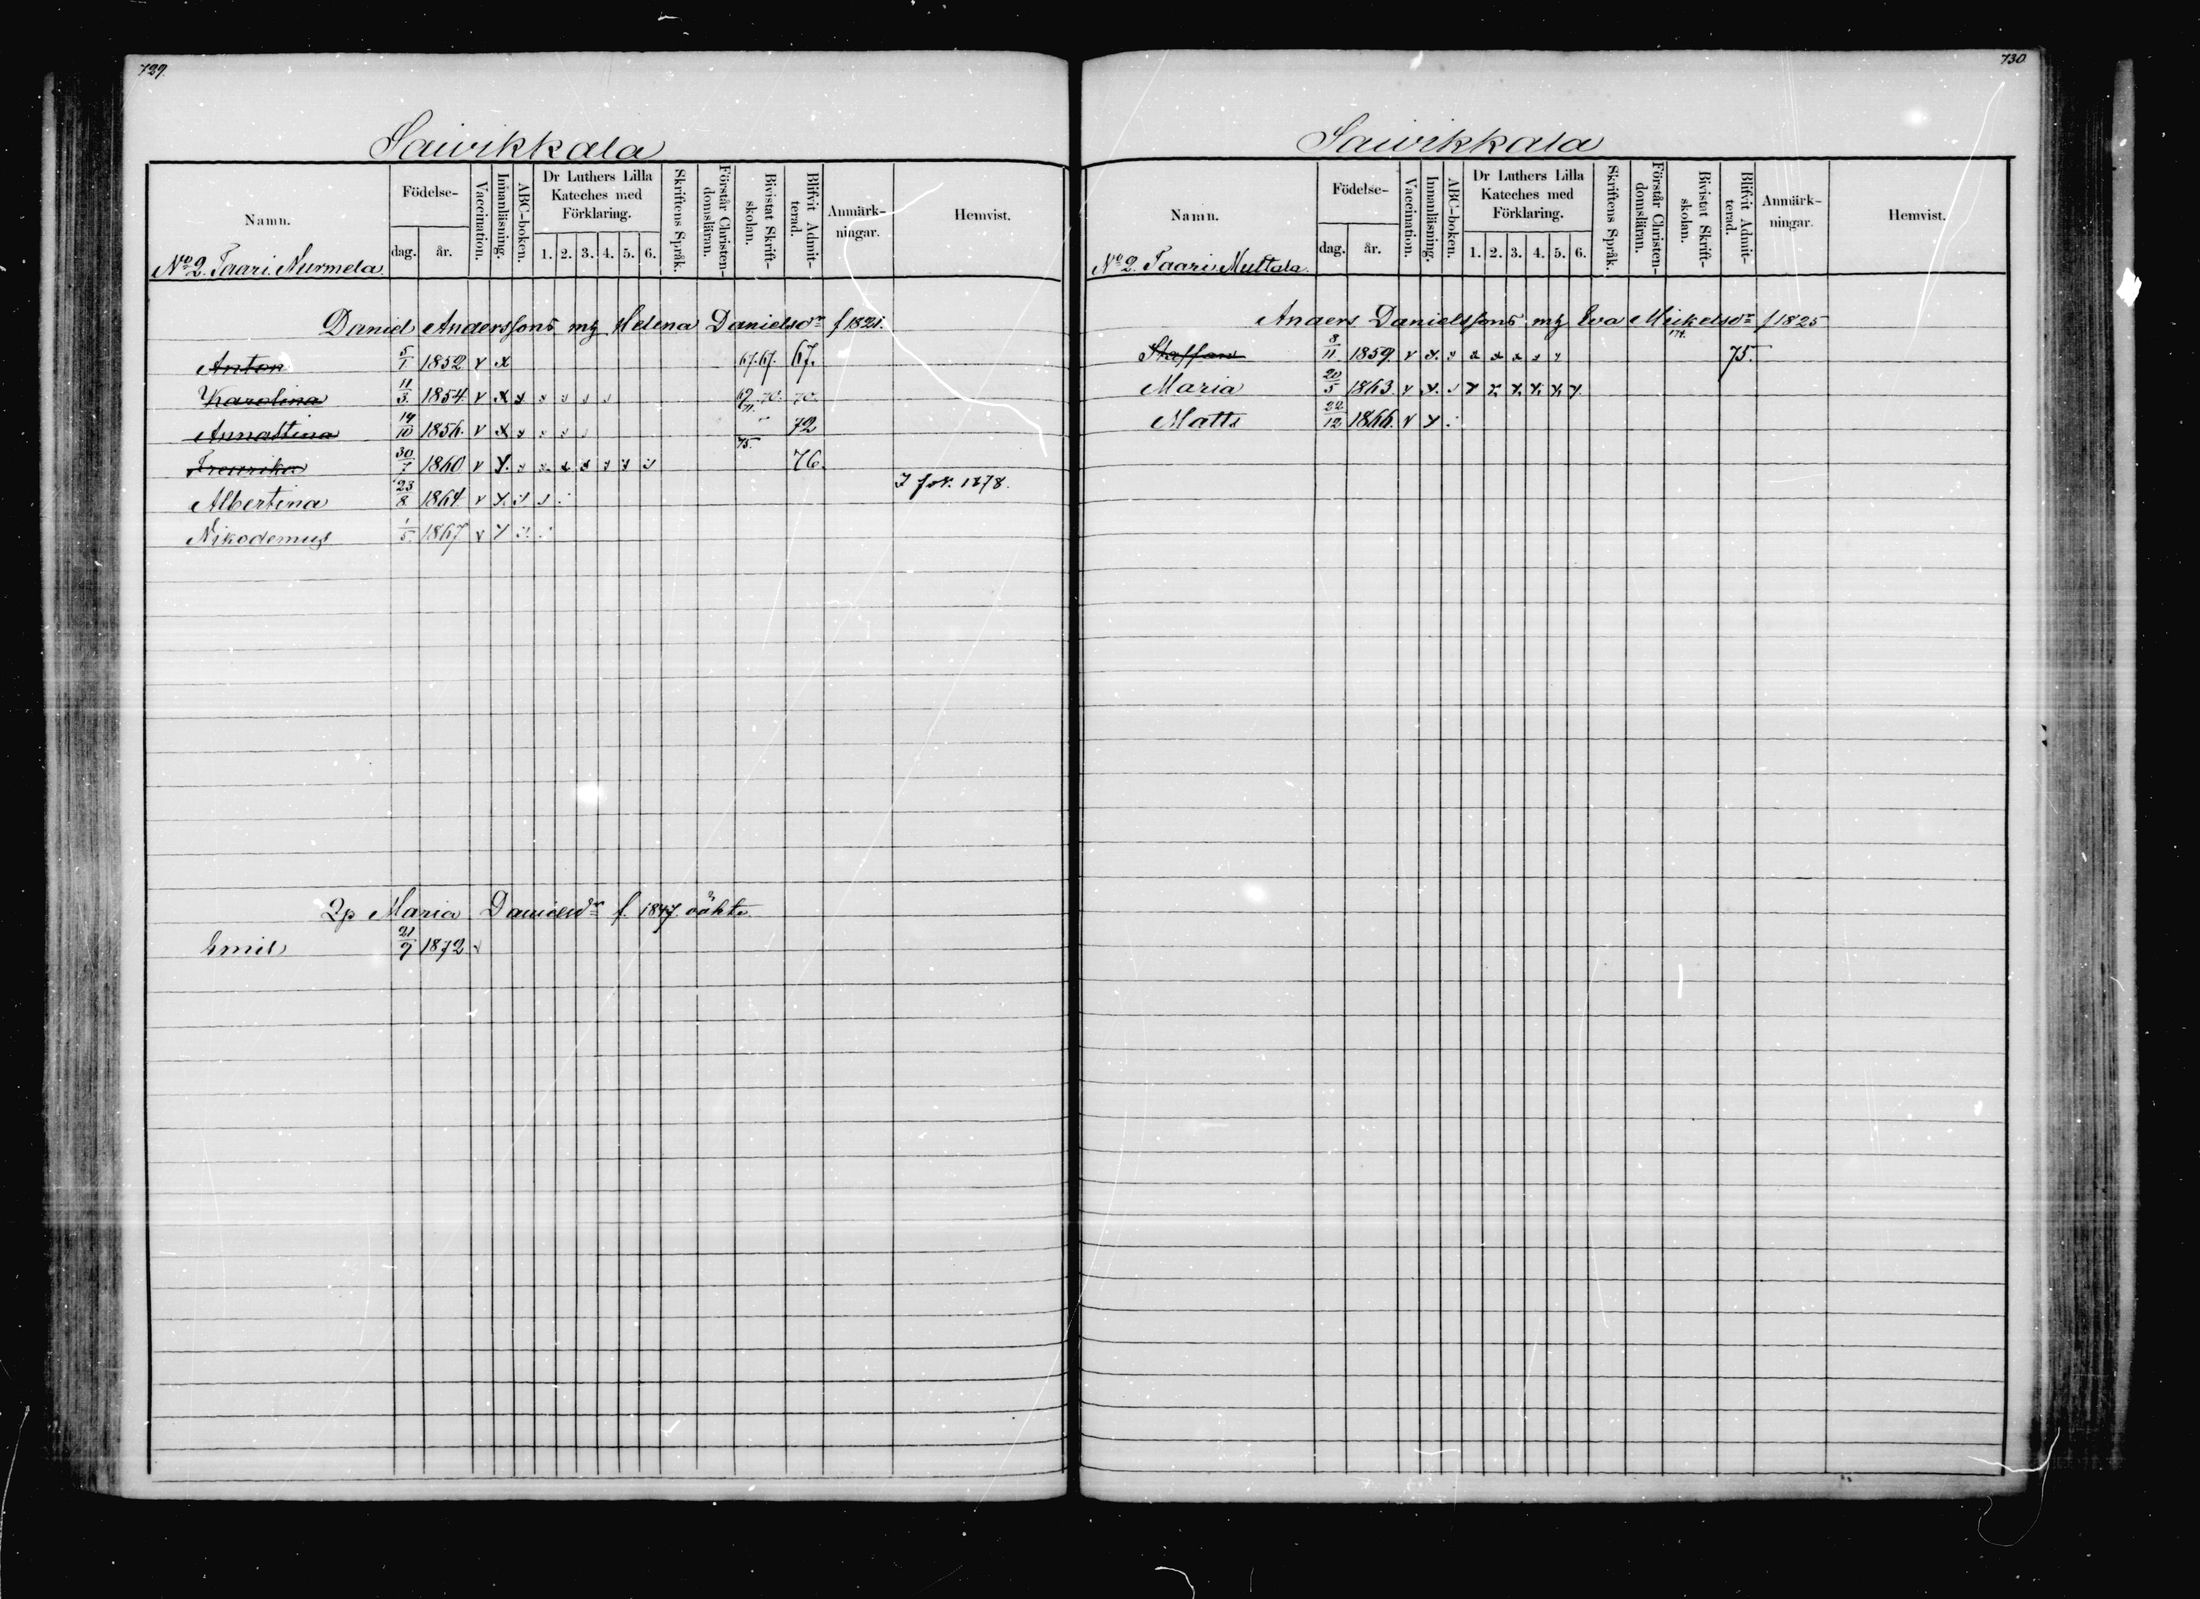 729.
Saivikkala
Namn.
Födelse-
dag. år.
Vaccination.
Innanläsning.
ABC-boken.
Dr Luthers Lilla
Kateches med
Förklaring.
1. 2. 3. 4. 5. 6.
Skriftens Språk.
Förstår Christen-
domsläran.
Bivistat Skrift-
skolan.
Blifvit Admit-
terad.
Anmärk-
ningar.
Hemvist.
No 2. Taari Nurmela
Daniel Anderssons m hu Helena Danielsdr f 1821.
Anton 5/1 1852 v x 67. 67. 67.
Karolina 11/3 1854 v x 69 70. 70.
Annastina 14/10 1856. v x 71. 72
Fredrika 30/7 1860 v x 75. 76.
Albertina 23/8 1864 v x I fvr. 1878.
Nikodemus 1/5 1867 v x
Qp Maria Danielsdr f. 1847
Emil 21/9 1872 v
730
Saivikkala
Namn.
Födelse-
dag. år.
Vaccination.
Innanläsning.
ABC-boken.
Dr Luthers Lilla
Kateches med
Förklaring.
1. 2. 3. 4. 5. 6.
Skriftens Språk.
Förstår Christen-
domsläran.
Bivistat Skrift-
skolan.
Blifvit Admit-
terad.
Anmärk-
ningar.
Hemvist.
No 2. Taari Multala
Anders Danielssons m hu Eva Mikelsdr f 1825
Staffan 8/11 1859. v x 174. 75.
Maria 20/5 1863. v x
Matts 22/12 1866. v x